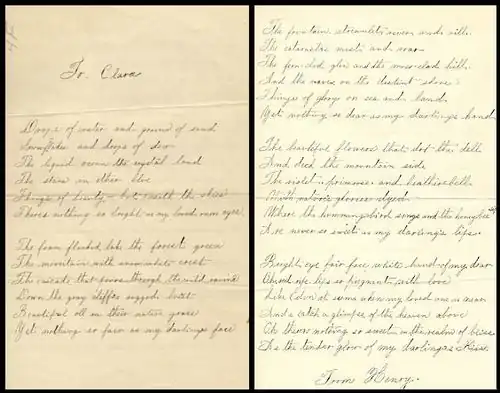 To. Clara
Drops of water and ground of sand
Snowflakes and drops of dew
The liquid ocean the crystal land
The stars in ether blue
Things of beauty - but neath the skies
Theres nothing so bright as my loved ones eyes.
The foam flecked lake the forest green
The mountain with snow white crest
The cascade that pours through the wild ravine
Down the gray cliffs rugged breast
Beautiful all in their native grace
Yet nothing so fair as my darlings face
The fountain streamlets rivers and rills
The cataracts mist and roar
The fern clad glen and the moss clad hills
And the waves on the distant shore
Things of glory on sea and land
Yet nothing so dear as my darlings hand
The beautiful flowers that dot the dell
And deck the mountain side
The violet primrose and heatherbell
With natures glories dyed
Where the hummingbird sings and the honeybee sips
Are never so sweet as my darling's lips.
Bright eye fair face white hand of my dear
And ripe lips so fragrant with love
Like at some when my loved one is near
And a catch a glimpse of the heaven above
Oh theres nothing so sweet in the realm of bliss
As the tender glow of my darlings Kiss.
From Henry.